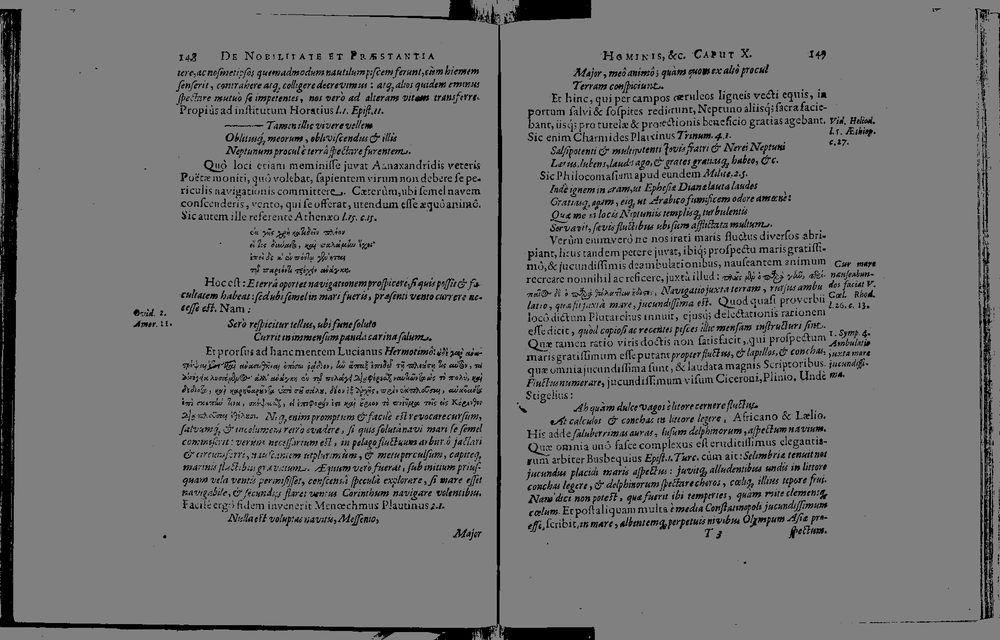 148 DE NOBILITATE ET PRÆSTANTIA
tere, ac nosmetipsos quemadmodum nautilum piscem ferunt, cùm hiemem
senserit, contrahere atq, colligere decrevimus: atq, alios quidem eminus
spectare mutuò se impetentes, nos verò ad alteram vitam transferre.
Propiùs ad institutum Horatius l.1. Epist.11.
Tamen illic vivere vellem
Oblitusq, meorum, obliviscendus & illis
Neptunum procul è terrâ spectare furentem.
Quô loci etiam meminisse juvat Anaxandridis veteris
Poëtæ moniti, quô volebat, sapientem virum non debere se pe-
riculis navigationis committere. Cæterùm, ubi semel navem
conscenderis, vento, qui se offerat, utendum esse æquô animô.
Sic autem ille referente Athenæo l.15. c.15.
Hoc est: E terrâ oportet navigationem prospicere, si quis possit & fa-
cultatem habeat: sed ubi semel in mari fueris, præsenti vento currere ne-
cesse est. Nam:
Ovid. 2.
Amor. 11.
Serò respicitur tellus, ubi fune soluto
Currit in immensum panda carina salum.
Et prorsus ad hanc mentem Lucianus Hermotimô:
Neq, enim promptum & facile est revocare cursum,
salvumq, & incolumem retrò evadere, si quis solutâ navi mari se semel
commiserit: verùm necessarium est, in pelago fluctuum arbitriô jactari
& circumferri, nauseantem utplurimùm, & metu perculsum, capiteq,
marinis fluctibus gravatum. Æquum verò fuerat, sub initium prius-
quam vela ventis permisisset, conscensâ speculâ explorare, si mare esset
navigabile, & secundus flaret ventus Corinthum navigare volentibus.
Facile ergò fidem invenerit Menœchmus Plautinus 2.1.
Nulla est voluptas navitis, Messenio,
Major
HOMINIS, &c. CAPUT X. 149
Major, meô animô; quàm quom ex altô procul
Terram conspiciunt.
Et hinc, qui per campos cæruleos ligneis vecti equis, in
portum salvi & sospites redirunt, Neptuno aliisq; sacra facie-
bant, iisq; pro tutelæ & protectionis beneficio gratias agebant.
Vid. Heliod.
l.5. Æthiop.
c.27.
Sic enim Charmides Plautinus Trinum. 4.1.
Salsipotenti & multipotenti Jovis fratri & Nerei Neptuni
Lætus, lubens, laudes ago, & grates gratiasq, habeo, &c.
Sic Philocomasium apud eundem Milite. 2.5.
Inde ignem in aram, ut Ephesiæ Dianæ lauta laudes
Gratiasq, agam, eiq, ut Arabico fumificem odore amœnè:
Quæ me in locis Neptuniis templisq, turbulentis
Servavit, sævis fluctibus ubi sum afflictata multum.
Verùm enumverò ne nos irati maris fluctus diversos abri-
piant, litus tandem petere juvat, ibiq; prospectu maris gratissi-
mô, & jucundissimis deambulationibus, nauseantem animum
recreare nonnihil ac reficere, juxtà illud:
Cur mare
nauseabun-
dos faciat V.
Cæl. Rhod.
l.26. c. 13.
Navigatio juxta terram, rursus ambu
latio, quæ sit juxtà mare, jucundissima est. Quod quasi proverbii
locô dictum Plutarchus innuit, ejusq; delectationis rationem
esse dicit, quòd copiosi ac recentes pisces illic mensam instructuri sint.
1. Symp. 4.
Ambulatio
juxta mare
jucundissi-
ma.
Quæ tamen ratio viris doctis non satisfacit, qui prospectum
maris gratissimum esse putant propter fluctus, & lapillos, & conchas,
quæ omnia jucundissima sunt, & laudata magnis Scriptoribus.
Fluctus numerare, jucundissimum visum Ciceroni, Plinio, Unde
Stigelius:
Ah quàm dulce vagos è litore cernere fluctus.
At calculos & conchas in litore legere, Africano & Lælio.
His adde saluberrimas auras, lusum delphinorum, aspectum navium.
Quæ omnia unô fasce complexus est eruditissimus elegantia-
rum arbiter Busbequius Epist.1. Turc. cùm ait: Selimbria tenuit nos
jucundus placidi maris aspectus: juvitq, alludentibus undis in littore
conchas legere, & delphinorum spectare choros, cœliq, illius tepore frui.
Nam dici non potest, quæ fuerit ibi temperies, quàm mite clemensq,
cœlum. Et post aliquam multa è media Constantinopoli jucundissimum
esse, scribit, in mare, albentemq, perpetuis nivibus Olympum Asiæ pro-
T 3
spectum.